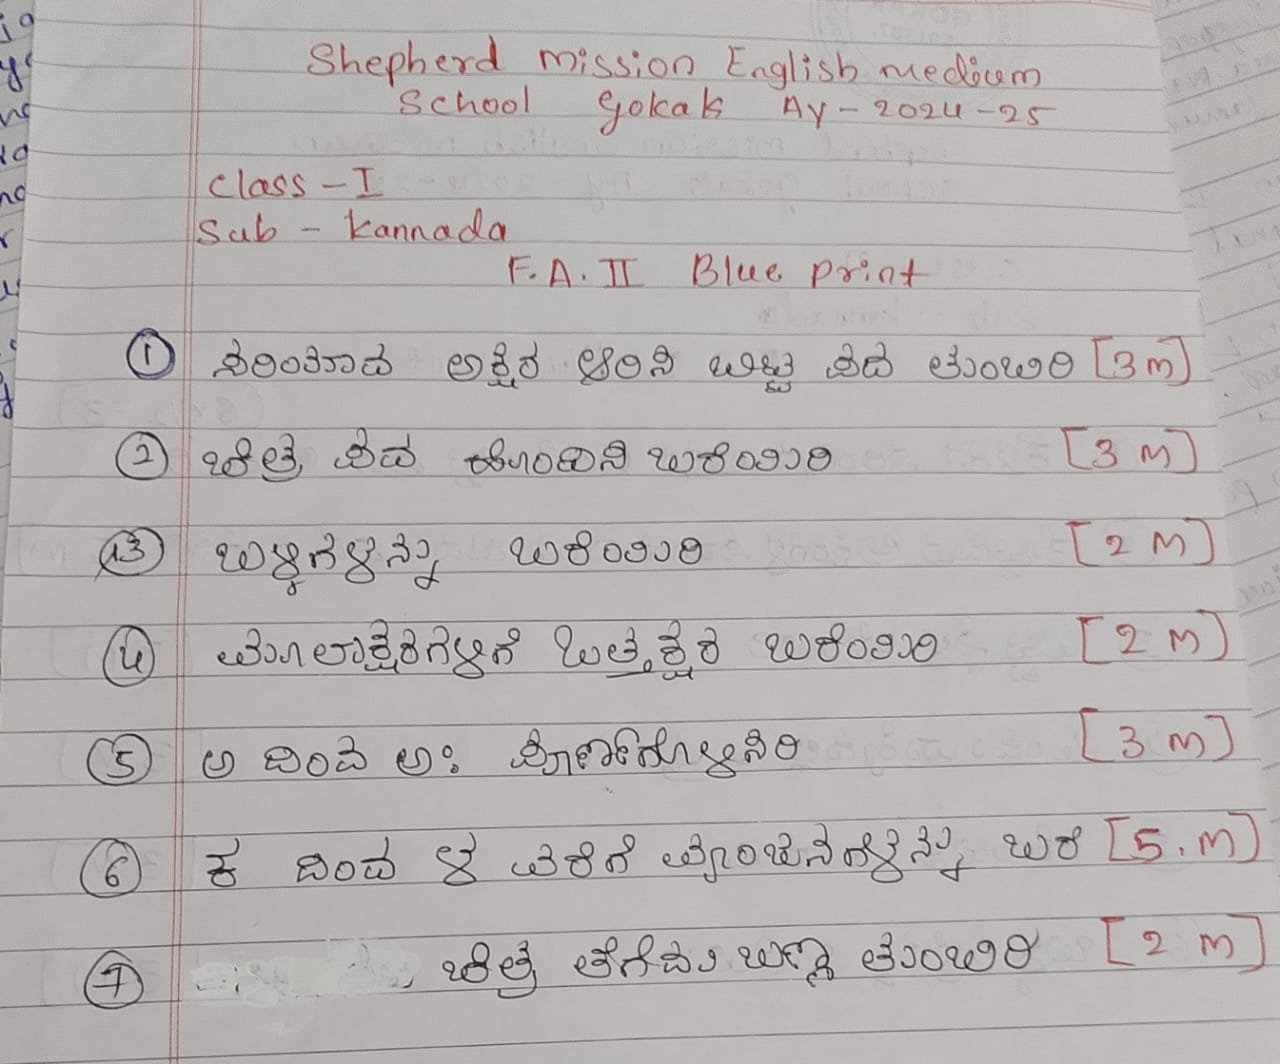 Shepherd mission English medium
School Gokak AY - 2024 - 25
Class - I
Sub - Kannada
F.A. II Blue print
① ಸರಿಯಾದ ಅಕ್ಷರ ಆರಿಸಿ ಬಿಟ್ಟ ಪದ ತುಂಬಿರಿ [3 m]
② ಚಿತ್ರ ಪದ ಹೊಂದಿಸಿ ಬರೆಯಿರಿ [3 m]
③ ಬಳ್ಳಿಗಳನ್ನು ಬರೆಯಿರಿ [2 m]
④ ಮೂಲಾಕ್ಷರಗಳಿಗೆ ಒತ್ತಕ್ಷರ ಬರೆಯಿರಿ [2 m]
⑤ ಅ ದಿಂದ ಅಃ ಪೂರ್ಣಗೊಳಿಸಿರಿ [3 m]
⑥ ಕ ದಿಂದ ಳ ವರೆಗೆ ವ್ಯಂಜನಗಳನ್ನು ಬರೆ [5. m]
⑦ ಚಿತ್ರ ತೆಗೆದು ಬಣ್ಣ ತುಂಬಿರಿ [2 m]